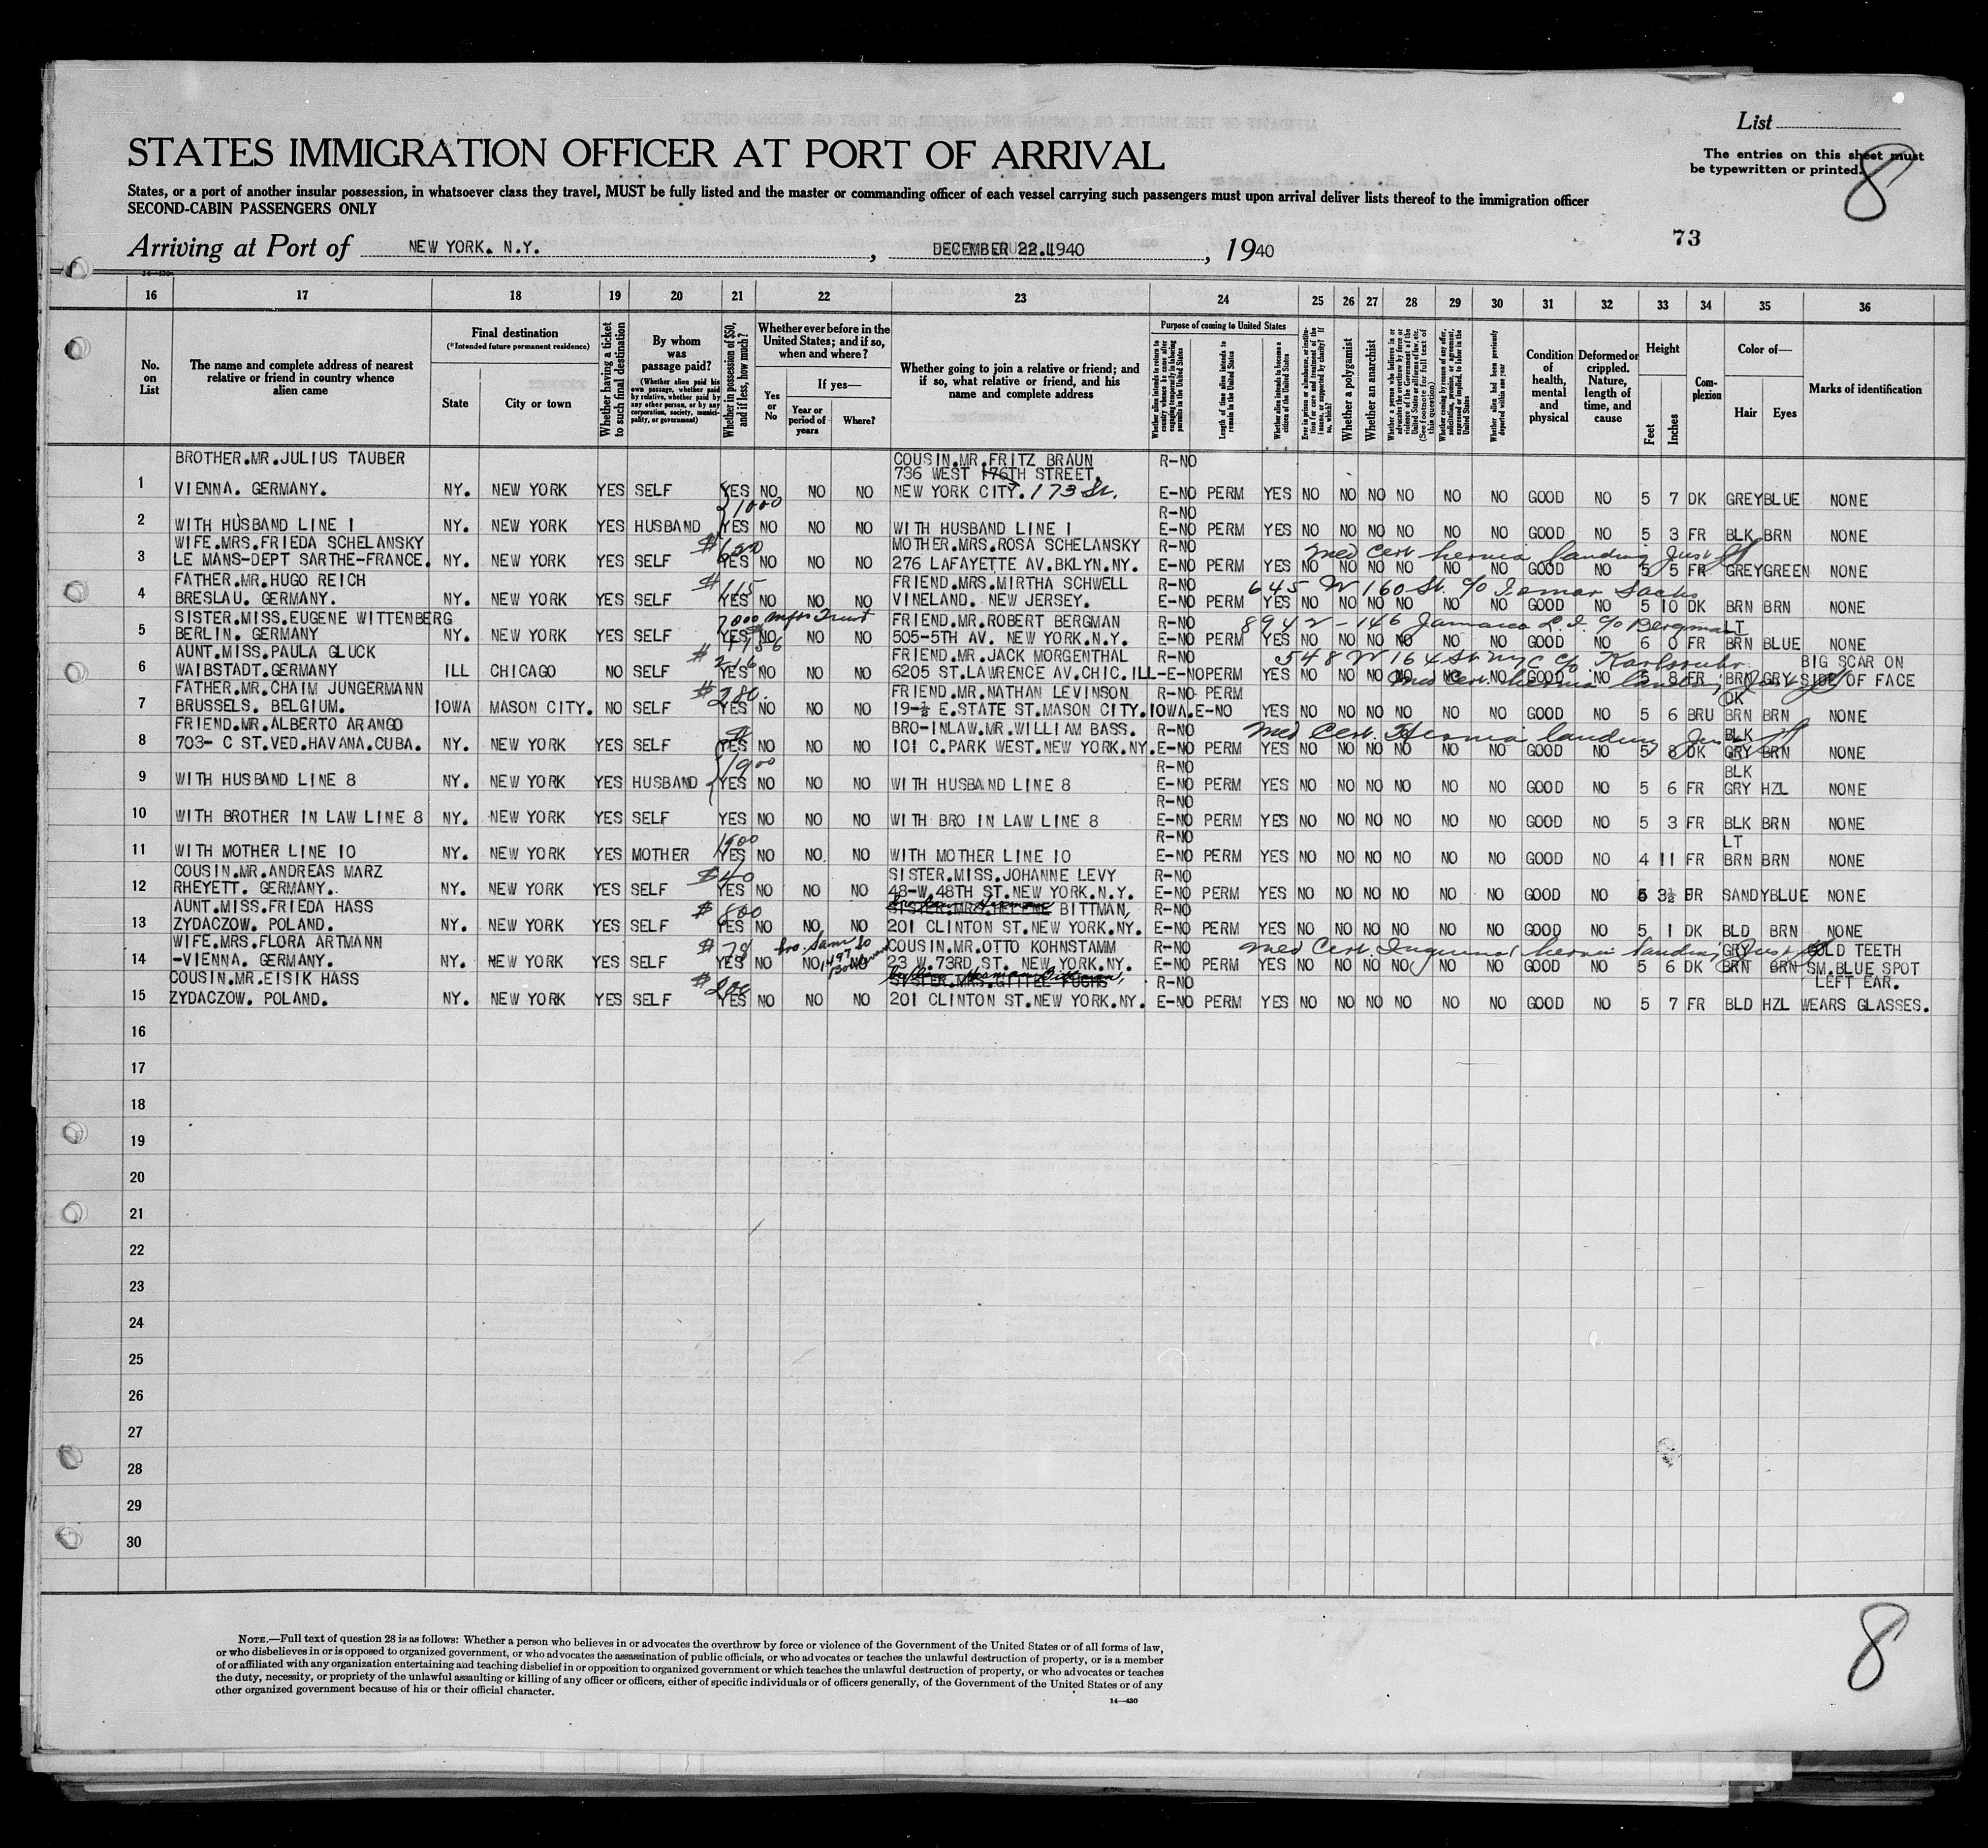 List
The entries on this sheet must
be typewritten or printed.
8
STATES IMMIGRATION OFFICER AT PORT OF ARRIVAL
States, or a port of another insular possession, in whatsoever class they travel, MUST be fully listed and the master or commanding officer of each vessel carrying such passengers must upon arrival deliver lists thereof to the immigration officer
SECOND-CABIN PASSENGERS ONLY
Arriving at Port of NEW YORK. N.Y. , DECEMBER 22. 1940 , 1940
73
16 17 18 19 20 21 22 23 24 25 26 27 28 29 30 31 32 33 34 35 36
No. on List
The name and complete address of nearest relative or friend in country whence alien came
Final destination
(*Intended future permanent residence)
State
City or town
Whether having a ticket to such final destination
By whom was passage paid?
(Whether alien paid his own passage, whether paid by relative, whether paid by any other person, or by any corporation, society, municipality, or government)
Whether in possession of $50, and if less, how much?
Whether ever before in the United States; and if so, when and where?
Yes or No
If yes—
Year or period of years
Where?
Whether going to join a relative or friend; and if so, what relative or friend, and his name and complete address
Purpose of coming to United States
Length of time alien intends to remain in the United States
Whether alien intends to become a citizen of the United States
Whether a polygamist
Whether an anarchist
Whether alien had been previously deported within one year
Condition of health, mental and physical
Deformed or crippled. Nature, length of time, and cause
Height
Feet
Inches
Complexion
Color of—
Hair
Eyes
Marks of identification
BROTHER.MR.JULIUS TAUBER COUSIN.MR.FRITZ BRAUN R-NO
736 WEST 176TH STREET,
1 VIENNA. GERMANY. NY. NEW YORK YES SELF YES NO NO NO NEW YORK CITY. 173 St. E-NO PERM YES NO NO NO NO NO NO GOOD NO 5 7 DK GREY BLUE NONE
1000 R-NO
2 WITH HUSBAND LINE 1 NY. NEW YORK YES HUSBAND YES NO NO NO WITH HUSBAND LINE 1 E-NO PERM YES NO NO NO NO NO NO GOOD NO 5 3 FR BLK BRN NONE
WIFE.MRS.FRIEDA SCHELANSKY MOTHER.MRS.ROSA SCHELANSKY R-NO Med Cert hernia landing
3 LE MANS-DEPT SARTHE-FRANCE. NY. NEW YORK YES SELF YES NO NO NO 276 LAFAYETTE AV.BKLYN.NY. E-NO PERM YES NO NO NO NO NO NO GOOD NO 5 5 FR GREY GREEN NONE
FATHER.MR.HUGO REICH $115 FRIEND.MRS.MIRTHA SCHWELL R-NO 645 W 160 St. c/o Sachs
4 BRESLAU. GERMANY. NY. NEW YORK YES SELF YES NO NO NO VINELAND. NEW JERSEY. E-NO PERM YES NO NO NO NO NO NO GOOD NO 5 10 DK BRN BRN NONE
SISTER.MISS.EUGENE WITTENBERG FRIEND.MR.ROBERT BERGMAN R-NO 8942-146 Jamaica L.I. c/o Bergman LT
5 BERLIN. GERMANY NY. NEW YORK YES SELF YES NO NO NO 505-5TH AV. NEW YORK.N.Y. E-NO PERM YES NO NO NO NO NO NO GOOD NO 6 0 FR BRN BLUE NONE
AUNT.MISS.PAULA GLUCK $216 FRIEND.MR.JACK MORGENTHAL R-NO 548 W 164 St NYC c/o BIG SCAR ON
6 WAIBSTADT.GERMANY ILL CHICAGO NO SELF YES NO NO NO 6205 ST.LAWRENCE AV.CHIC.ILL-E-NO PERM YES NO NO NO NO NO NO GOOD NO 5 8 FR BRN GRY SIDE OF FACE
FATHER.MR.CHAIM JUNGERMANN $280. FRIEND.MR.NATHAN LEVINSON R-NO PERM Med Cert. hernia landing DK
7 BRUSSELS. BELGIUM. IOWA MASON CITY. NO SELF YES NO NO NO 19-½ E.STATE ST.MASON CITY.IOWA.E-NO YES NO NO NO NO NO NO GOOD NO 5 6 BRU BRN BRN NONE
FRIEND.MR.ALBERTO ARANGO BRO-INLAW.MR.WILLIAM BASS. R-NO Med Cert. Hernia landing BLK
8 703- C ST.VED.HAVANA.CUBA. NY. NEW YORK YES SELF YES NO NO NO 101 C.PARK WEST.NEW YORK.NY. E-NO PERM YES NO NO NO NO NO NO GOOD NO 5 8 DK GRY BRN NONE
1900 R-NO BLK
9 WITH HUSBAND LINE 8 NY. NEW YORK YES HUSBAND YES NO NO NO WITH HUSBAND LINE 8 E-NO PERM YES NO NO NO NO NO NO GOOD NO 5 6 FR GRY HZL NONE
R-NO
10 WITH BROTHER IN LAW LINE 8 NY. NEW YORK YES SELF YES NO NO NO WITH BRO IN LAW LINE 8 E-NO PERM YES NO NO NO NO NO NO GOOD NO 5 3 FR BLK BRN NONE
R-NO LT
11 WITH MOTHER LINE 10 NY. NEW YORK YES MOTHER YES NO NO NO WITH MOTHER LINE 10 E-NO PERM YES NO NO NO NO NO NO GOOD NO 4 11 FR BRN BRN NONE
COUSIN.MR.ANDREAS MARZ $40 SISTER.MISS.JOHANNE LEVY R-NO
12 RHEYETT. GERMANY. NY. NEW YORK YES SELF YES NO NO NO 48-W.48TH ST.NEW YORK.N.Y. E-NO PERM YES NO NO NO NO NO NO GOOD NO 5 3½ FR SANDY BLUE NONE
AUNT.MISS.FRIEDA HASS $800 SISTER.MRS.HELENE BITTMAN, R-NO
13 ZYDACZOW. POLAND. NY. NEW YORK YES SELF YES NO NO NO 201 CLINTON ST.NEW YORK.NY. E-NO PERM YES NO NO NO NO NO NO GOOD NO 5 1 DK BLD BRN NONE
WIFE.MRS.FLORA ARTMANN $78 bro. Sam COUSIN.MR.OTTO KOHNSTAMM R-NO Med Cert. Inguinal hernia landing GRY GOLD TEETH
14 -VIENNA. GERMANY. NY. NEW YORK YES SELF YES NO NO NO 23 W.73RD.ST. NEW YORK.NY. E-NO PERM YES NO NO NO NO NO NO GOOD NO 5 6 DK BRN BRN SM.BLUE SPOT
COUSIN.MR.EISIK HASS $200 SISTER.MRS.GITTEL FUCHS R-NO LEFT EAR.
15 ZYDACZOW. POLAND. NY. NEW YORK YES SELF YES NO NO NO 201 CLINTON ST.NEW YORK.NY. E-NO PERM YES NO NO NO NO NO NO GOOD NO 5 7 FR BLD HZL WEARS GLASSES.
16
17
18
19
20
21
22
23
24
25
26
27
28
29
30
NOTE.—Full text of question 28 is as follows: Whether a person who believes in or advocates the overthrow by force or violence of the Government of the United States or of all forms of law,
or who disbelieves in or is opposed to organized government, or who advocates the assassination of public officials, or who advocates or teaches the unlawful destruction of property, or is a member
of or affiliated with any organization entertaining and teaching disbelief in or opposition to organized government or which teaches the unlawful destruction of property, or who advocates or teaches
the duty, necessity, or propriety of the unlawful assaulting or killing of any officer or officers, either of specific individuals or of officers generally, of the Government of the United States or of any
other organized government because of his or their official character.
14—430
8